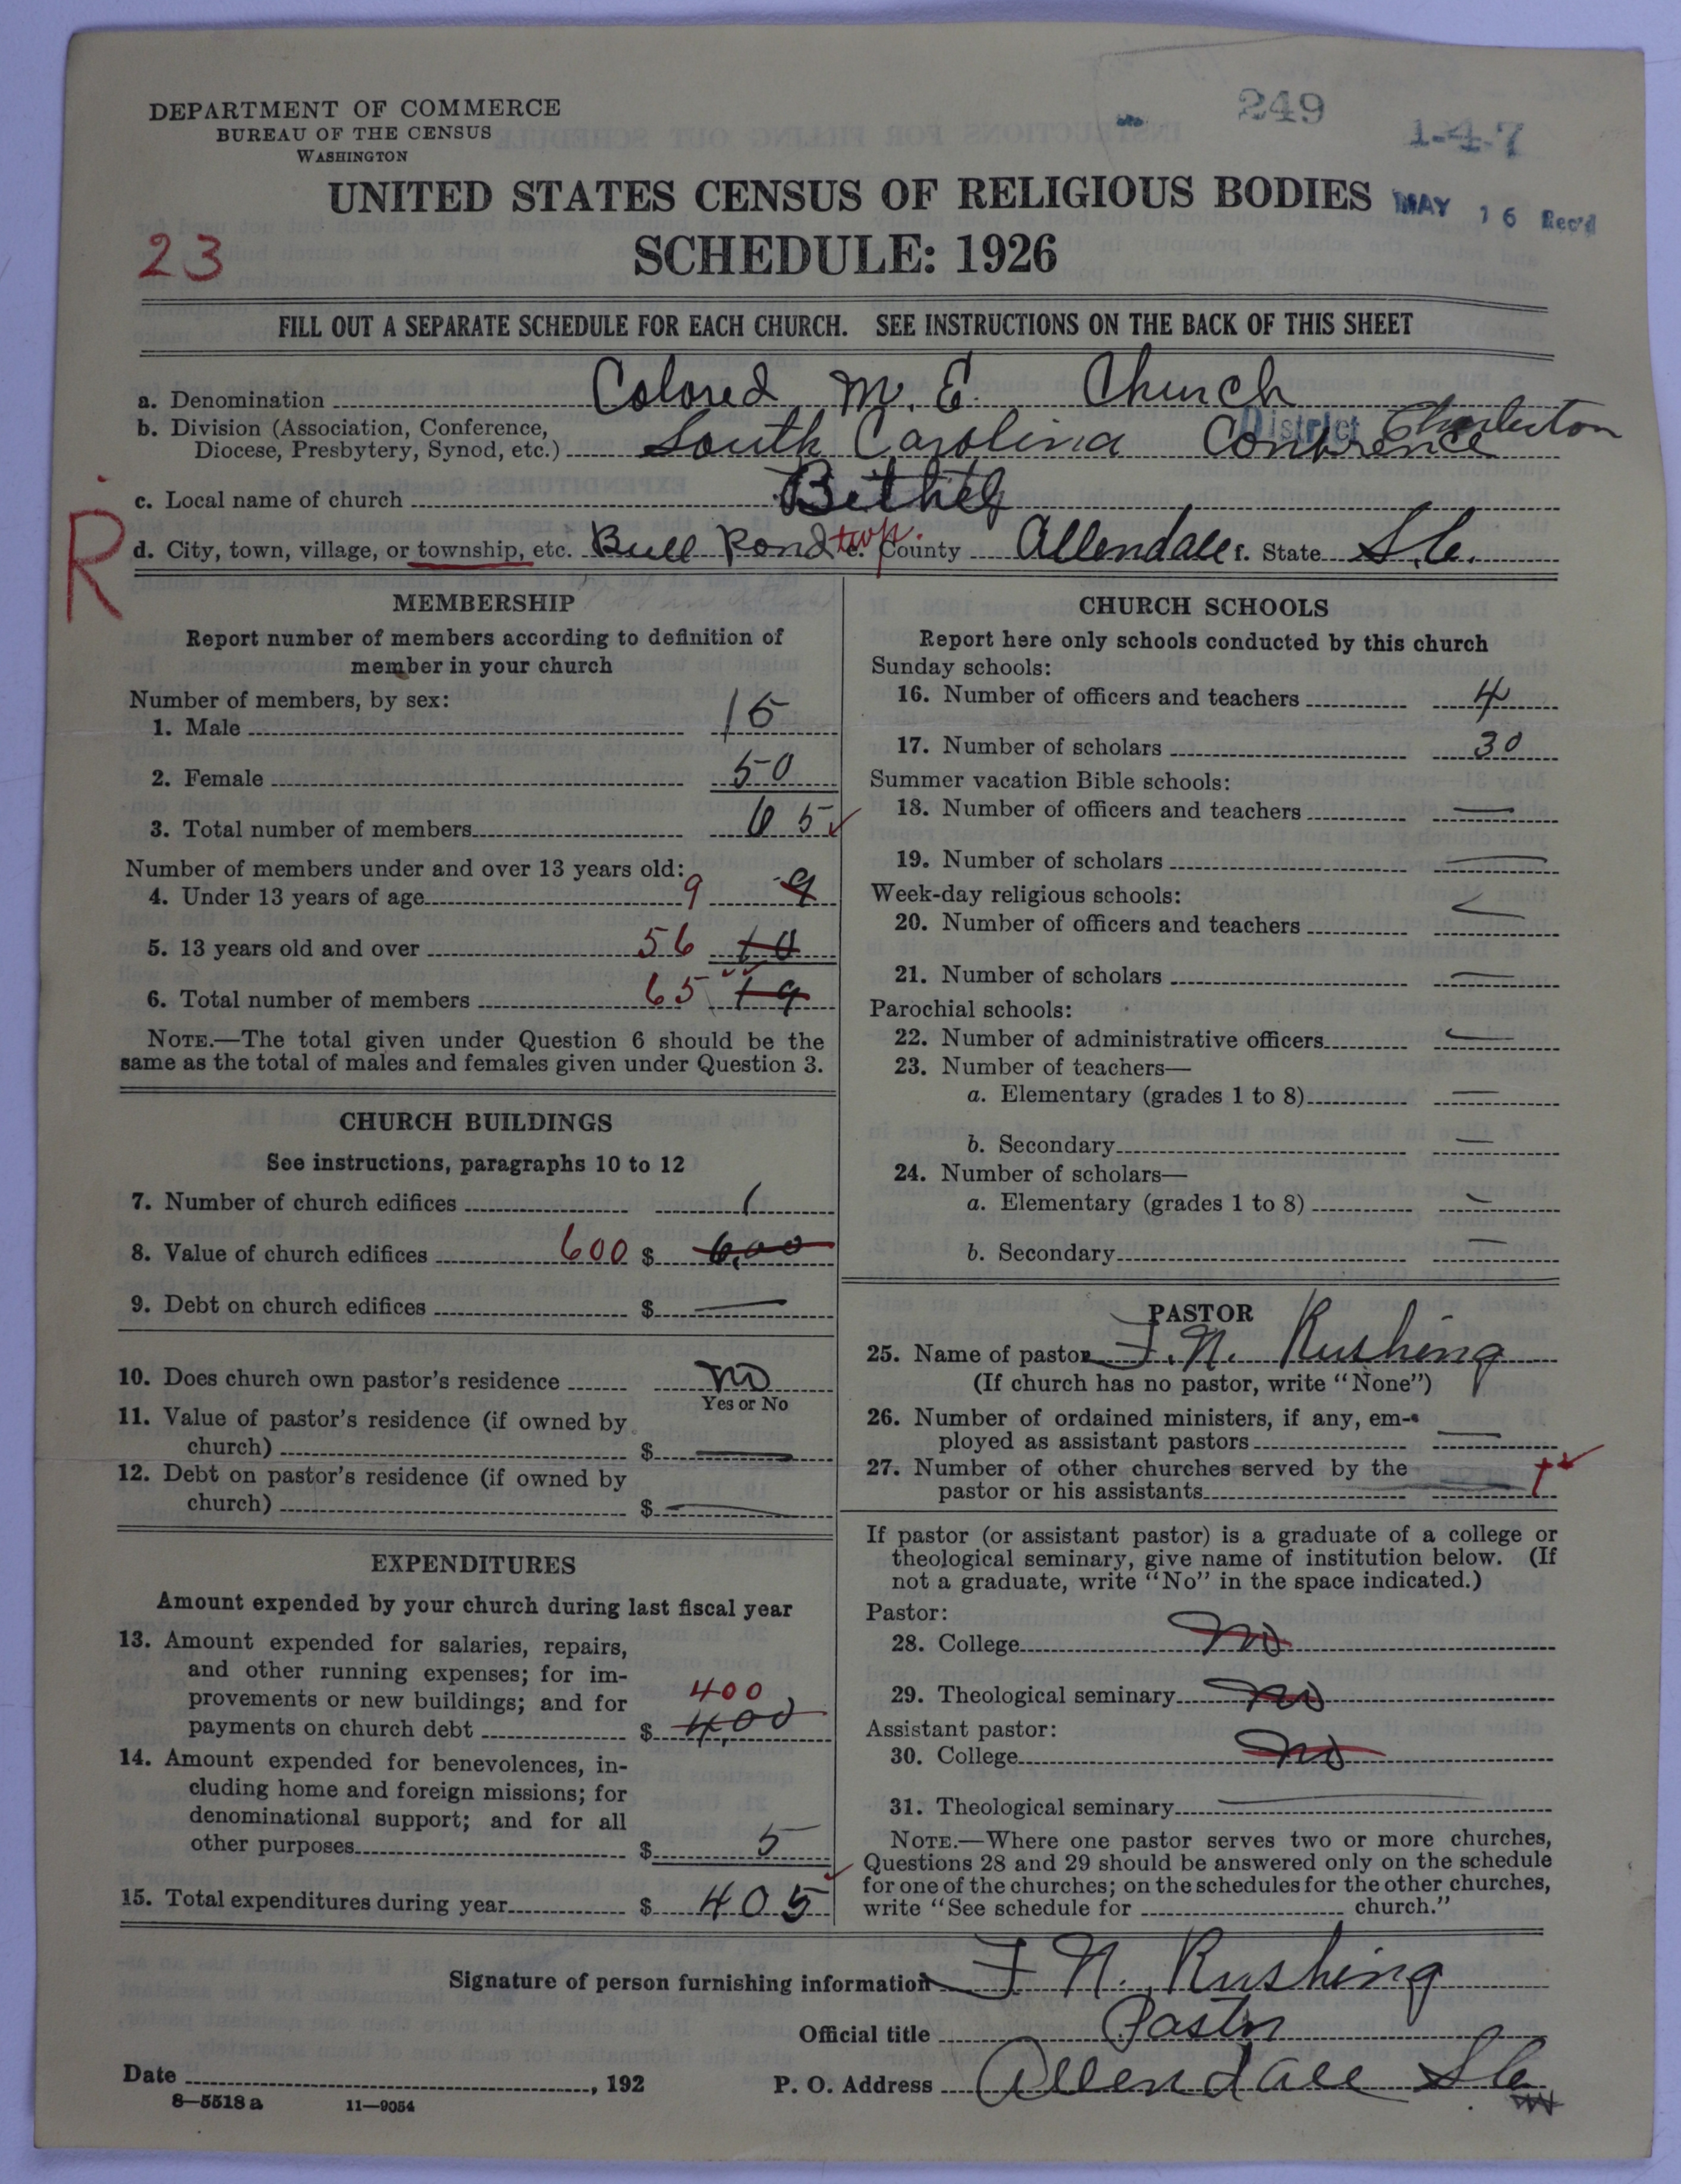 DEPARTMENT OF COMMERCE
BUREAU OF THE CENSUS
WASHINGTON
249
1-4-7
UNITED STATES CENSUS OF RELIGIOUS BODIES
MAY 16 Rec'd
23
SCHEDULE: 1926
FILL OUT A SEPARATE SCHEDULE FOR EACH CHURCH. SEE INSTRUCTIONS ON THE BACK OF THIS SHEET
a. Denomination Colored M. E. Church
b. Division (Association, Conference, Diocese, Presbytery, Synod, etc.) South Carolina Conference
District Charleston
c. Local name of church Bethel
R
d. City, town, village, or township, etc. Bull Pond twp. e. County Allendale f. State S.C.
MEMBERSHIP
Report number of members according to definition of
member in your church
Number of members, by sex:
1. Male 15
2. Female 50
3. Total number of members 65
Number of members under and over 13 years old:
4. Under 13 years of age 9 9
5. 13 years old and over 56 10
6. Total number of members 65 19
NOTE.—The total given under Question 6 should be the
same as the total of males and females given under Question 3.
CHURCH BUILDINGS
See instructions, paragraphs 10 to 12
7. Number of church edifices 1
8. Value of church edifices 600 $ 6,00
9. Debt on church edifices $ —
10. Does church own pastor's residence no
Yes or No
11. Value of pastor's residence (if owned by
church) $ —
12. Debt on pastor's residence (if owned by
church) $ —
EXPENDITURES
Amount expended by your church during last fiscal year
13. Amount expended for salaries, repairs,
and other running expenses; for im-
provements or new buildings; and for 400
payments on church debt $ 4,00
14. Amount expended for benevolences, in-
cluding home and foreign missions; for
denominational support; and for all
other purposes $ 5
15. Total expenditures during year $ 405
CHURCH SCHOOLS
Report here only schools conducted by this church
Sunday schools:
16. Number of officers and teachers 4
17. Number of scholars 30
Summer vacation Bible schools:
18. Number of officers and teachers —
19. Number of scholars —
Week-day religious schools:
20. Number of officers and teachers —
21. Number of scholars —
Parochial schools:
22. Number of administrative officers —
23. Number of teachers—
a. Elementary (grades 1 to 8) —
b. Secondary —
24. Number of scholars—
a. Elementary (grades 1 to 8) —
b. Secondary —
PASTOR
25. Name of pastor F. N. Rushing
(If church has no pastor, write "None")
26. Number of ordained ministers, if any, em-
ployed as assistant pastors —
27. Number of other churches served by the
pastor or his assistants — 1
If pastor (or assistant pastor) is a graduate of a college or
theological seminary, give name of institution below. (If
not a graduate, write "No" in the space indicated.)
Pastor:
28. College no
29. Theological seminary no
Assistant pastor:
30. College no
31. Theological seminary —
NOTE.—Where one pastor serves two or more churches,
Questions 28 and 29 should be answered only on the schedule
for one of the churches; on the schedules for the other churches,
write "See schedule for church."
Signature of person furnishing information F N. Rushing
Official title Pastor
Date , 192
P. O. Address Allendale S C
8—5518 a 11—9054